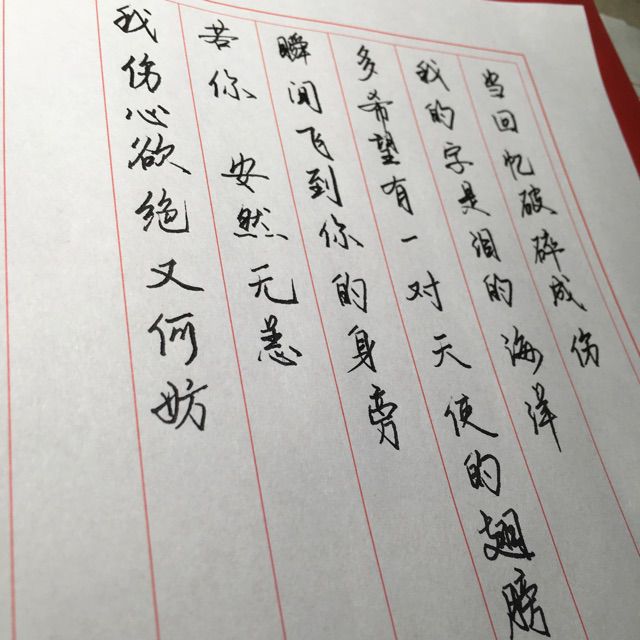 当回忆破碎成伤
我的字是泪的海洋
多希望有一对天使的翅膀
瞬间飞到你的身旁
若你 安然无恙
我伤心欲绝又何妨